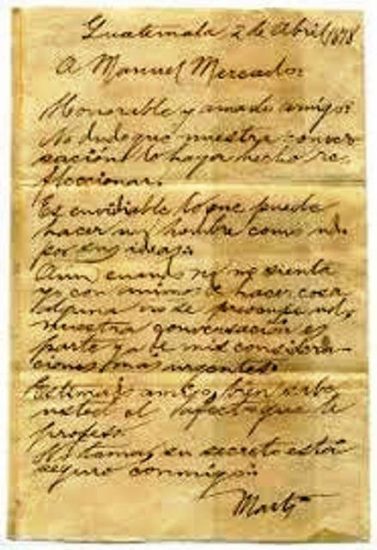 Guatemala 2 de Abril 1878
A Manuel Mercado:
Honorable y amado amigo:
No dudo que nuestra conver
sación lo haya hecho re
fleccionar.
Es envidiable lo que puede
hacer un hombre como ud.
por sus ideas.
Aun cuando no me sienta
yo con animo de hacer cosa
alguna no se preocupe ud,
nuestra conversación es
parte ya de mis considera-
ciones mas urgentes.
Estimado amigo, bien sabe
usted el afecto que le
profeso.
No tema, su secreto está
seguro conmigo.
Martí